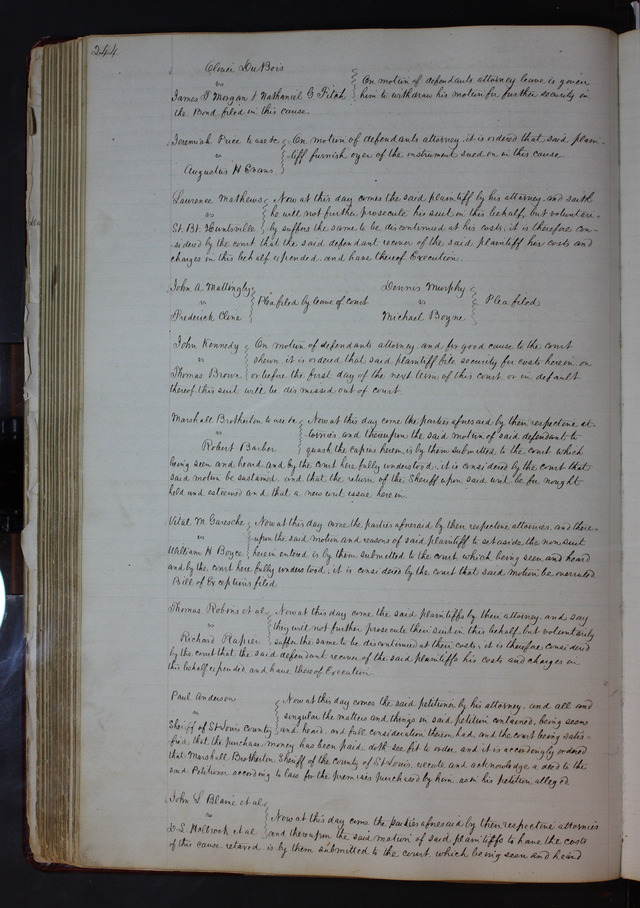 244
Clovis DuBois
vs
James P Morgan & Nathaniel C Fitch
On motion of defendants attorney leave is given
him to withdraw his motion for further security in
the Bond filed in this cause.
Jeremiah Price to use &c
vs
Augustus H Evans
On motion of defendants attorney, it is ordered that said plain-
-tiff furnish oyer of the instrument sued on in this cause
Laurence Mathews
vs
St. Bt. Huntsville
Now at this day comes the said plaintiff by his attorney and saith
he will not further prosecute his suit in this behalf, but voluntari-
ly suffers the same to be discontinued at his costs, it is therefore con-
sidered by the court that the said defendant recover of the said plaintiff her costs and
charges in this behalf expended, and have thereof Execution.
John A Mattingly
vs
Frederick Cline
Plea filed by leave of court
Dennis Murphy
vs
Michael Boyne
Plea filed
John Kennedy
vs
Thomas Brown
On motion of defendants attorney, and for good cause to the court
shewn, it is ordered that said plaintiff file security for costs herein, on
or before the first day of the next term of this court or in default
thereof this suit will be dismissed out of court.
Marshall Brotherton to use &c
vs
Robert Barber
Now at this day come the parties aforesaid by their respective at-
-tornies, and thereupon the said motion of said defendant to
quash the capias herein, is by them submitted to the court which
being seen and heard and by the court here fully understood, it is considered by the court that
said motion be sustained, and that the return of the Sheriff upon said writ be for nought
held and esteemed and that a new writ issue herein
Vital M. Garesche
vs
William H Boyce
Now at this day come the parties aforesaid by their respective attornies, and there-
-upon the said motion and reasons of said plaintiff to set aside the nonsuit
herein entered is by them submitted to the court, which being seen and heard
and by the court here fully understood, it is considered by the court that said motion be overruled
Bill of Exceptions filed
Thomas Robins et al
vs
Richard Rapier
Now at this day come the said plaintiffs by their attorney, and say
they will not further prosecute their suit in this behalf, but voluntarily
suffer the same to be discontinued at their costs, it is therefore considered
by the court that the said defendant recover of the said plaintiffs his costs and charges in
this behalf expended, and have thereof Execution
Paul Anderson
vs
Sheriff of St Louis County
Now at this day comes the said petitioner by his attorney, and all and
singular the matters and things in said petition contained, being seen
and heard, and full consideration thereon had, and the court being satis-
fied, that the purchase money has been paid, doth see fit to order, and it is accordingly ordered
that Marshall Brotherton Sheriff of the County of St Louis, execute and acknowledge a deed to the
said Petitioner according to law for the premises purchased by him as in his petition alleged
John S Blaine et al
vs
D. S. Holbrook et al
Now at this day come the parties aforesaid by their respective attornies
and thereupon the said motion of said plaintiffs to have the costs
of this cause retaxed is by them submitted to the court which being seen and heard